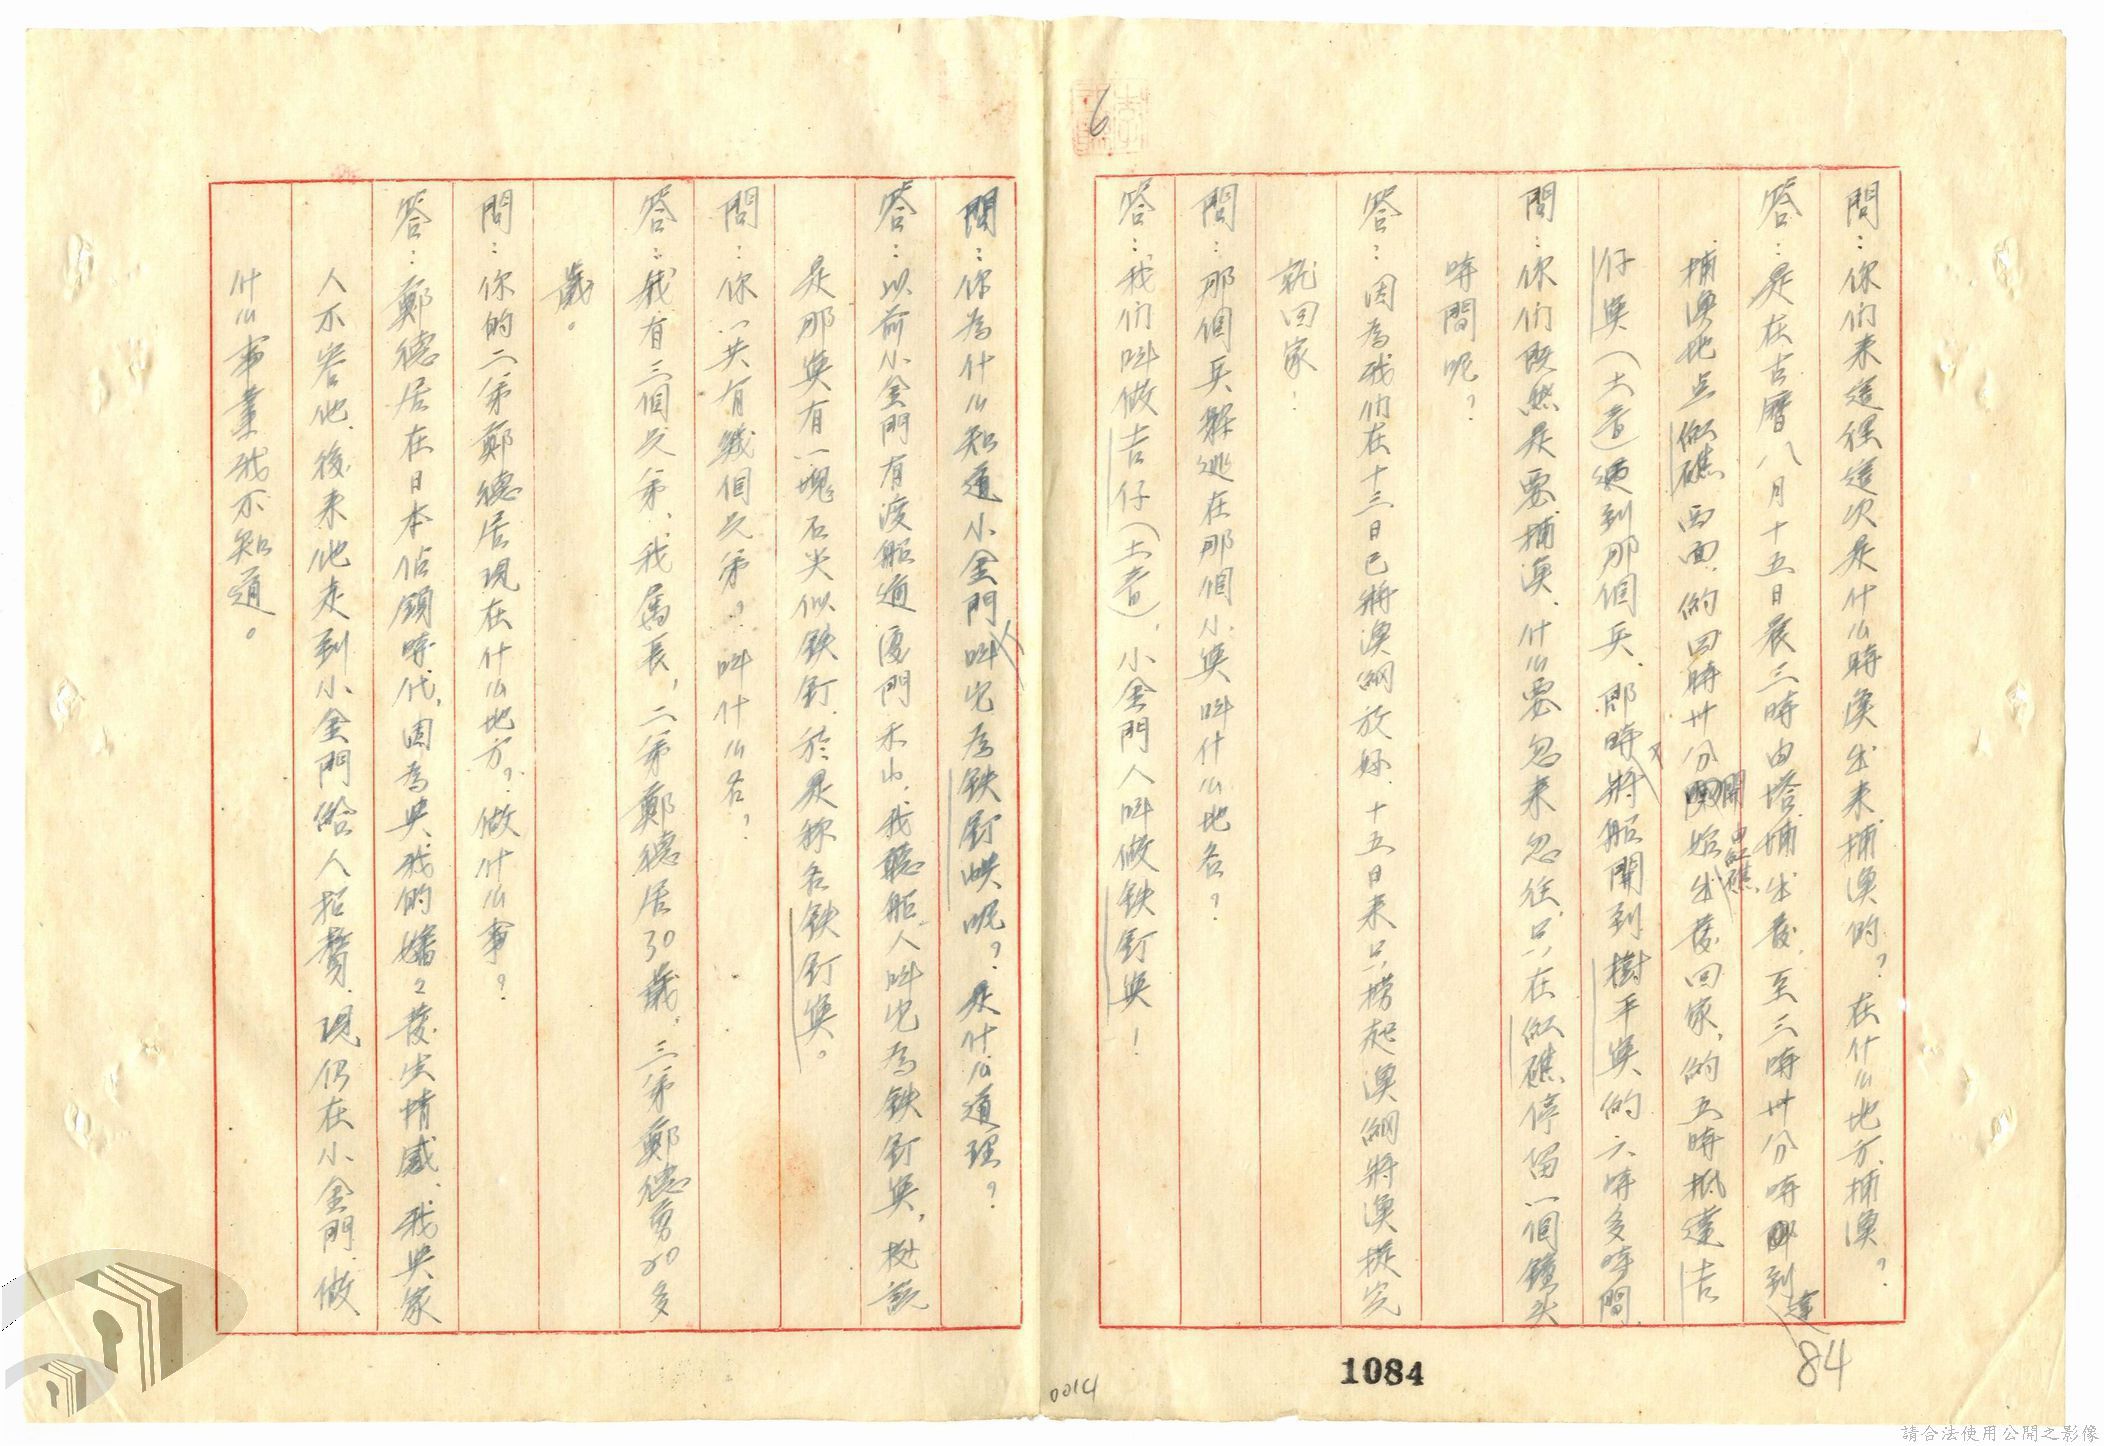 問：你们來這裡這次是什么時候出來捕漁的？在什么地方捕漁？
答：是在古曆八月十五日晨三時由塔埔出發，至三時卅分時即到達
捕漁地点紅礁西面，約四時卅分開始由紅礁出發回家，約五時抵達吉
仔奧（土音）遇到那個兵，即時又將船開到樹平奧約六時多時間
問：你们既然是要捕漁，什么要忽來忽往，只在紅礁停留一個鐘头
時間呢？
答：因為我们在十三日已將漁網放好，十五日來只撈起漁網將漁提完
就回家！
問：那個兵躲逃在那個小奧叫什么地名？
答：我们叫做吉仔（土音），小金門人叫做鉄釘奧！
問：你為什么知道小金門人叫它為鉄釘奧呢？是什么道理？
答：以前小金門有渡船通廈門禾山，我聽船人叫它為鉄釘奧，據說
是那奧有一塊石尖似鉄釘，於是称名鉄釘奧。
問：你一共有幾個兄弟？叫什么名？
答：我有三個兄弟，我居長，二弟鄭德居30歲，三弟鄭德勇20多
歲。
問：你的二弟鄭德居現在什么地方？做什么事？
答：鄭德居在日本佔領時代，因為與我的嬸々發生情感，我與家
人不容他，後來他走到小金門給人招贅，現仍在小金門，做
什么事業我不知道。
6
84
1084
0014
請合法使用公開之影像